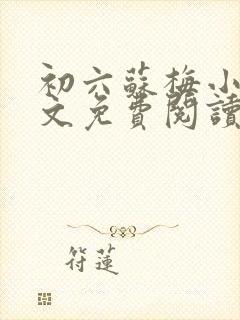 初六蘇梅小
文免費閱讀
符蓮